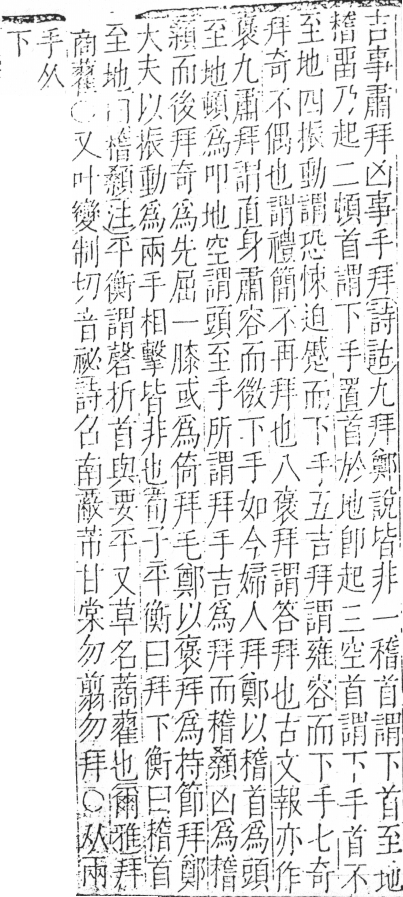 吉事肅拜凶事手拜詩詁九拜鄭說皆非一稽首謂下首至地
稽畱乃起二頓首謂下手置首於地卽起三空首謂下手首不
至地四振動謂恐悚迫蹙而下手五吉拜謂雍容而下手七奇
拜奇不偶也謂禮簡不再拜也八褒拜謂答拜也古文報亦作
褒九肅拜謂直身肅容而微下手如今婦人拜鄭以稽首爲頭
至地頓爲叩地空謂頭至手所謂拜手吉爲拜而稽顙凶爲稽
顙而後拜奇爲先屈一膝或爲倚拜毛鄭以褒拜爲持節拜鄭
大夫以振動爲兩手相擊皆非也荀子平衡曰拜下衡曰稽首
至地曰稽顙注平衡謂磬折首與要平又草名蔏藋也爾雅拜
蔏藋○又叶變制切音祕詩召南蔽芾甘棠勿翦勿拜○从兩
手从
下